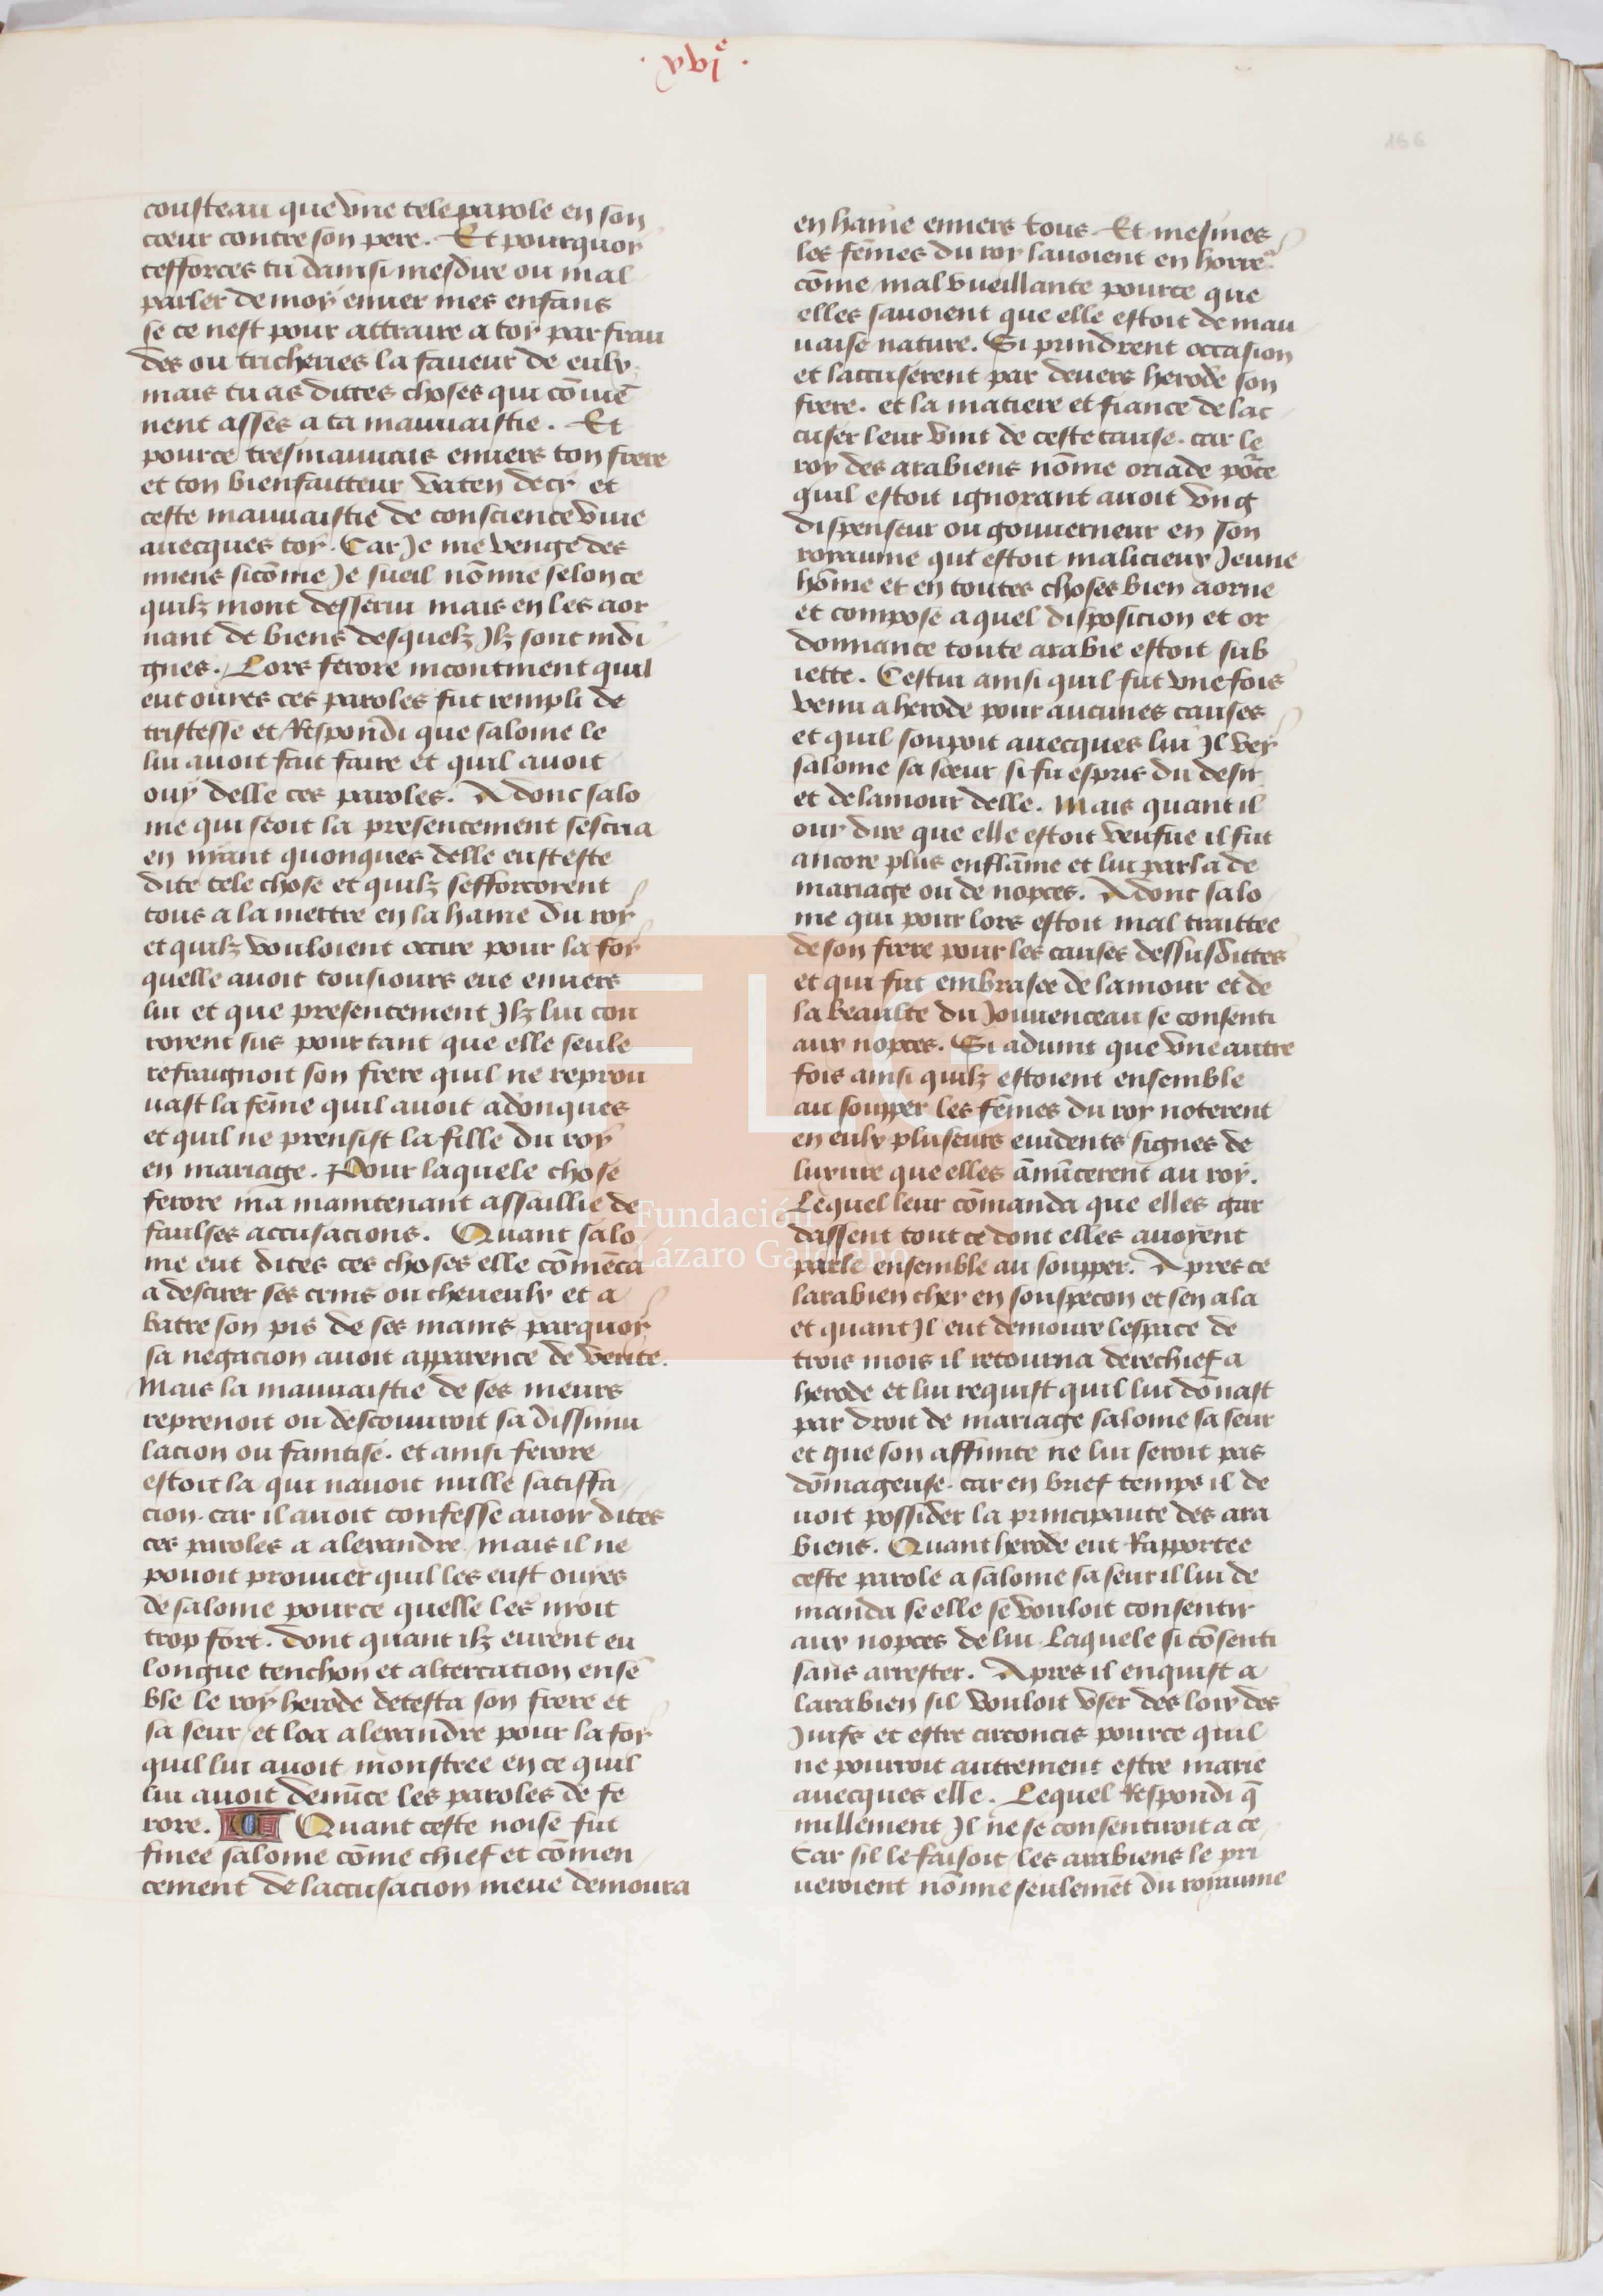 166
cousteau que vne tele parole en son
cœur contre son pere. Et pourquoy
tefforces tu dainsi mesdire ou mal
parler de moy enuer mes enfans
se ce nest pour attraire a toy par frau
des ou tricheries la faueur de eulx,
mais tu as dittes choses qui cōuiē
nent asses a ta mauuaistie. Et
pource tresmauuais enuers ton frere
et ton bienfaitteur vaten decy et
ceste mauuaistie de conscience viue
auecques toy. Car Je me venge des
miens sicōme Je sueil nōmie selon ce
quilz mont desserui mais en les aor
nant de biens desquelz Jlz sont indi
gnes. Lors ferore incontinent quil
eut ouyes ces paroles fut rempli de
tristesse et Respondi que salome le
lui auoit fait faire et quil auoit
ouy delle ces paroles. Adonc salo
me qui seoit la presentement sescria
en niant quonques delle eust este
dite tele chose et quilz sefforcoient
tous a la mettre en la haine du roy
et quilz vouloient occire pour la foy
quelle auoit tousiours eue enuers
lui et que presentement Jlz lui cou
roient sus pourtant que elle seule
refraignoit son frere quil ne reprou
uast la fēme quil auoit adonques
et quil ne prensist la fille du roy
en mariage. Pour laquele chose
ferore ma maintenant assaillie de
faulses accusacions. Quant salo
me eut dites ces choses elle cōmēca
a descirer ses crins ou cheueulx et a
batre son pis de ses mains parquoy
sa negacion auoit apparence de verite.
Mais la mauuaistie de ses meurs
reprenoit ou descouuroit sa dissimu
lacion ou faintise. et ainsi ferore
estoit la qui nauoit nulle satiffa
cion. car il auoit confesse auoir dites
ces paroles a alexandre mais il ne
pouoit prouuer quil les eust ouyes
de salome pource quelle les nioit
trop fort. dont quant ilz eurent eu
longue tenchon et altercation ensē
ble le roy herode detesta son frere et
sa seur et loa alexandre pour la foy
quil lui auoit monstree en ce quil
lui auoit denūce les paroles de fe
rore. Quant ceste noise fut
finee salome cōme chief et cōmen
cement de laccusacion meue demoura
en haine enuers tous. Et mesmes
les fēmes du roy lauoient en horre
cōme malvueillante pource que
elles sauoient que elle estoit de mau
uaise nature. Si prindrent occasion
et laccuserent par deuers herode son
frere. et la matiere et fiance de lac
cuser leur vint de ceste cause. car le
roy des arabiens nōme oriade pource
quil estoit ignorant auoit vng
dispenseur ou gouuerneur en son
royaume qui estoit malicieux Jeune
hōme et en toutes choses bien aorne
et compose a quel disposicion et or
donnance toute arabie estoit sub
iette. Cestui ainsi quil fut vne fois
venu a herode pour aucunes causes
et quil soupoit auecques lui Jl vey
salome sa sœur si fu espris du desir
et de lamour delle. Mais quant il
ouy dire que elle estoit veufue il fut
ancore plus enflāme et lui parla de
mariage ou de nopces. Adonc salo
me qui pour lors estoit mal traittee
de son frere pour les causes dessusdittes
et qui fut embrasee de lamour et de
la beaulte du Jouuenceau se consenti
aux nopces. Si aduint que vne autre
fois ainsi quilz estoient ensemble
au soupper les fēmes du roy noterent
en eulx pluseurs euidents signes de
luxure que elles ānūcerent au roy.
Lequel leur cōmanda que elles gar
dassent tout ce dont elles auoyent
parle ensemble au soupper. Apres ce
larabien chey en souspecon et sen ala
et quant Jl eut demoure lespace de
trois mois il retourna derechief a
herode et lui requist quil lui dōnast
par droit de mariage salome sa seur
et que son affinite ne lui seroit pas
dōmageuse. car en brief temps il de
uoit possider la principaute des ara
biens. Quant herode eut Rapportee
ceste parole a salome sa seur il lui de
manda se elle se vouloit consentir
aux nopces de lui. Laquele si cōsenti
sans arrester. Apres il enquist a
larabien sil vouloit vser des loix des
Juifs et estre circoncis pource quil
ne pourroit autrement estre marie
auecques elle. Lequel Respondi q̄
nullement Jl ne se consentiroit a ce,
Car sil le faisoit les arabiens le pri
ueroient nōmie seulemēt du royaume
FLG
Fundación
Lázaro Galdiano